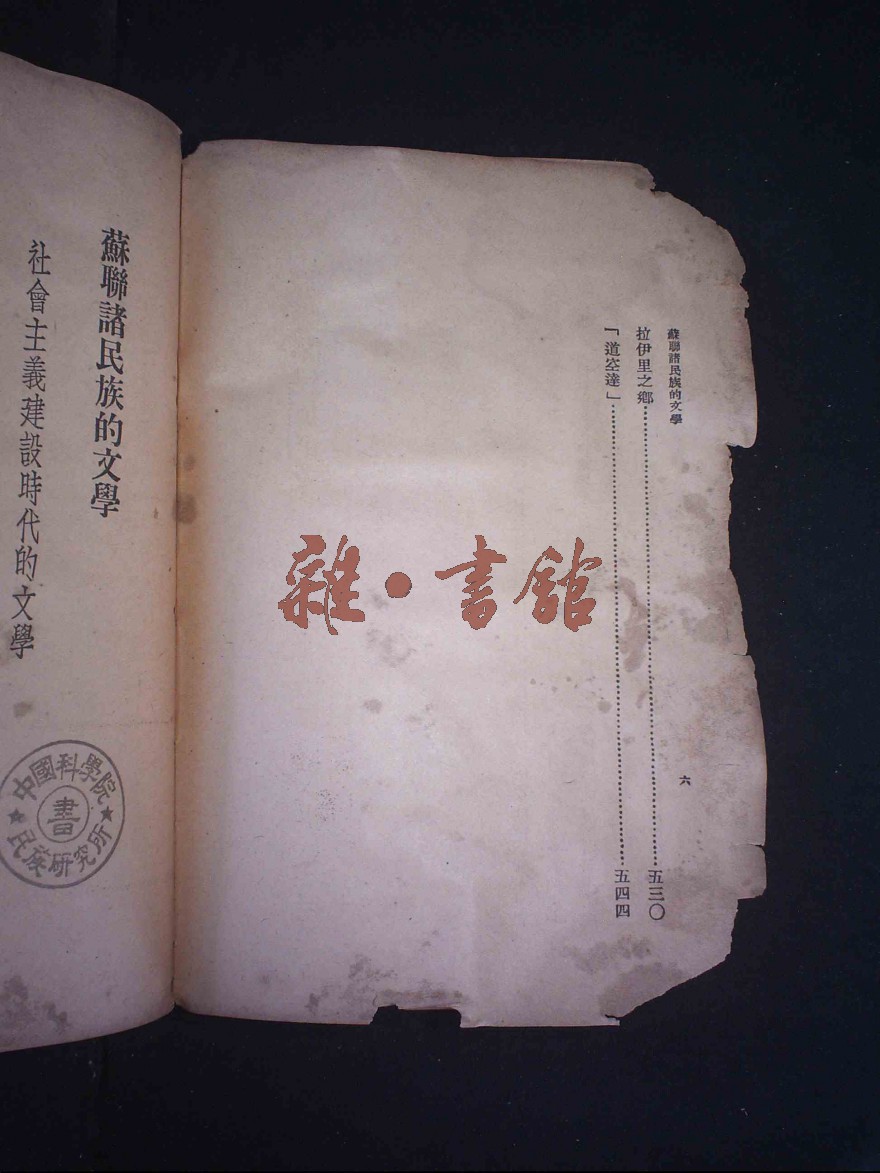 蘇聯諸民族的文學
拉伊里之鄉……五三〇
「道空達」……五四四
六
雜·書館
蘇聯諸民族的文學
社會主義建設時代的文學
中國科學院
書
民族研究所